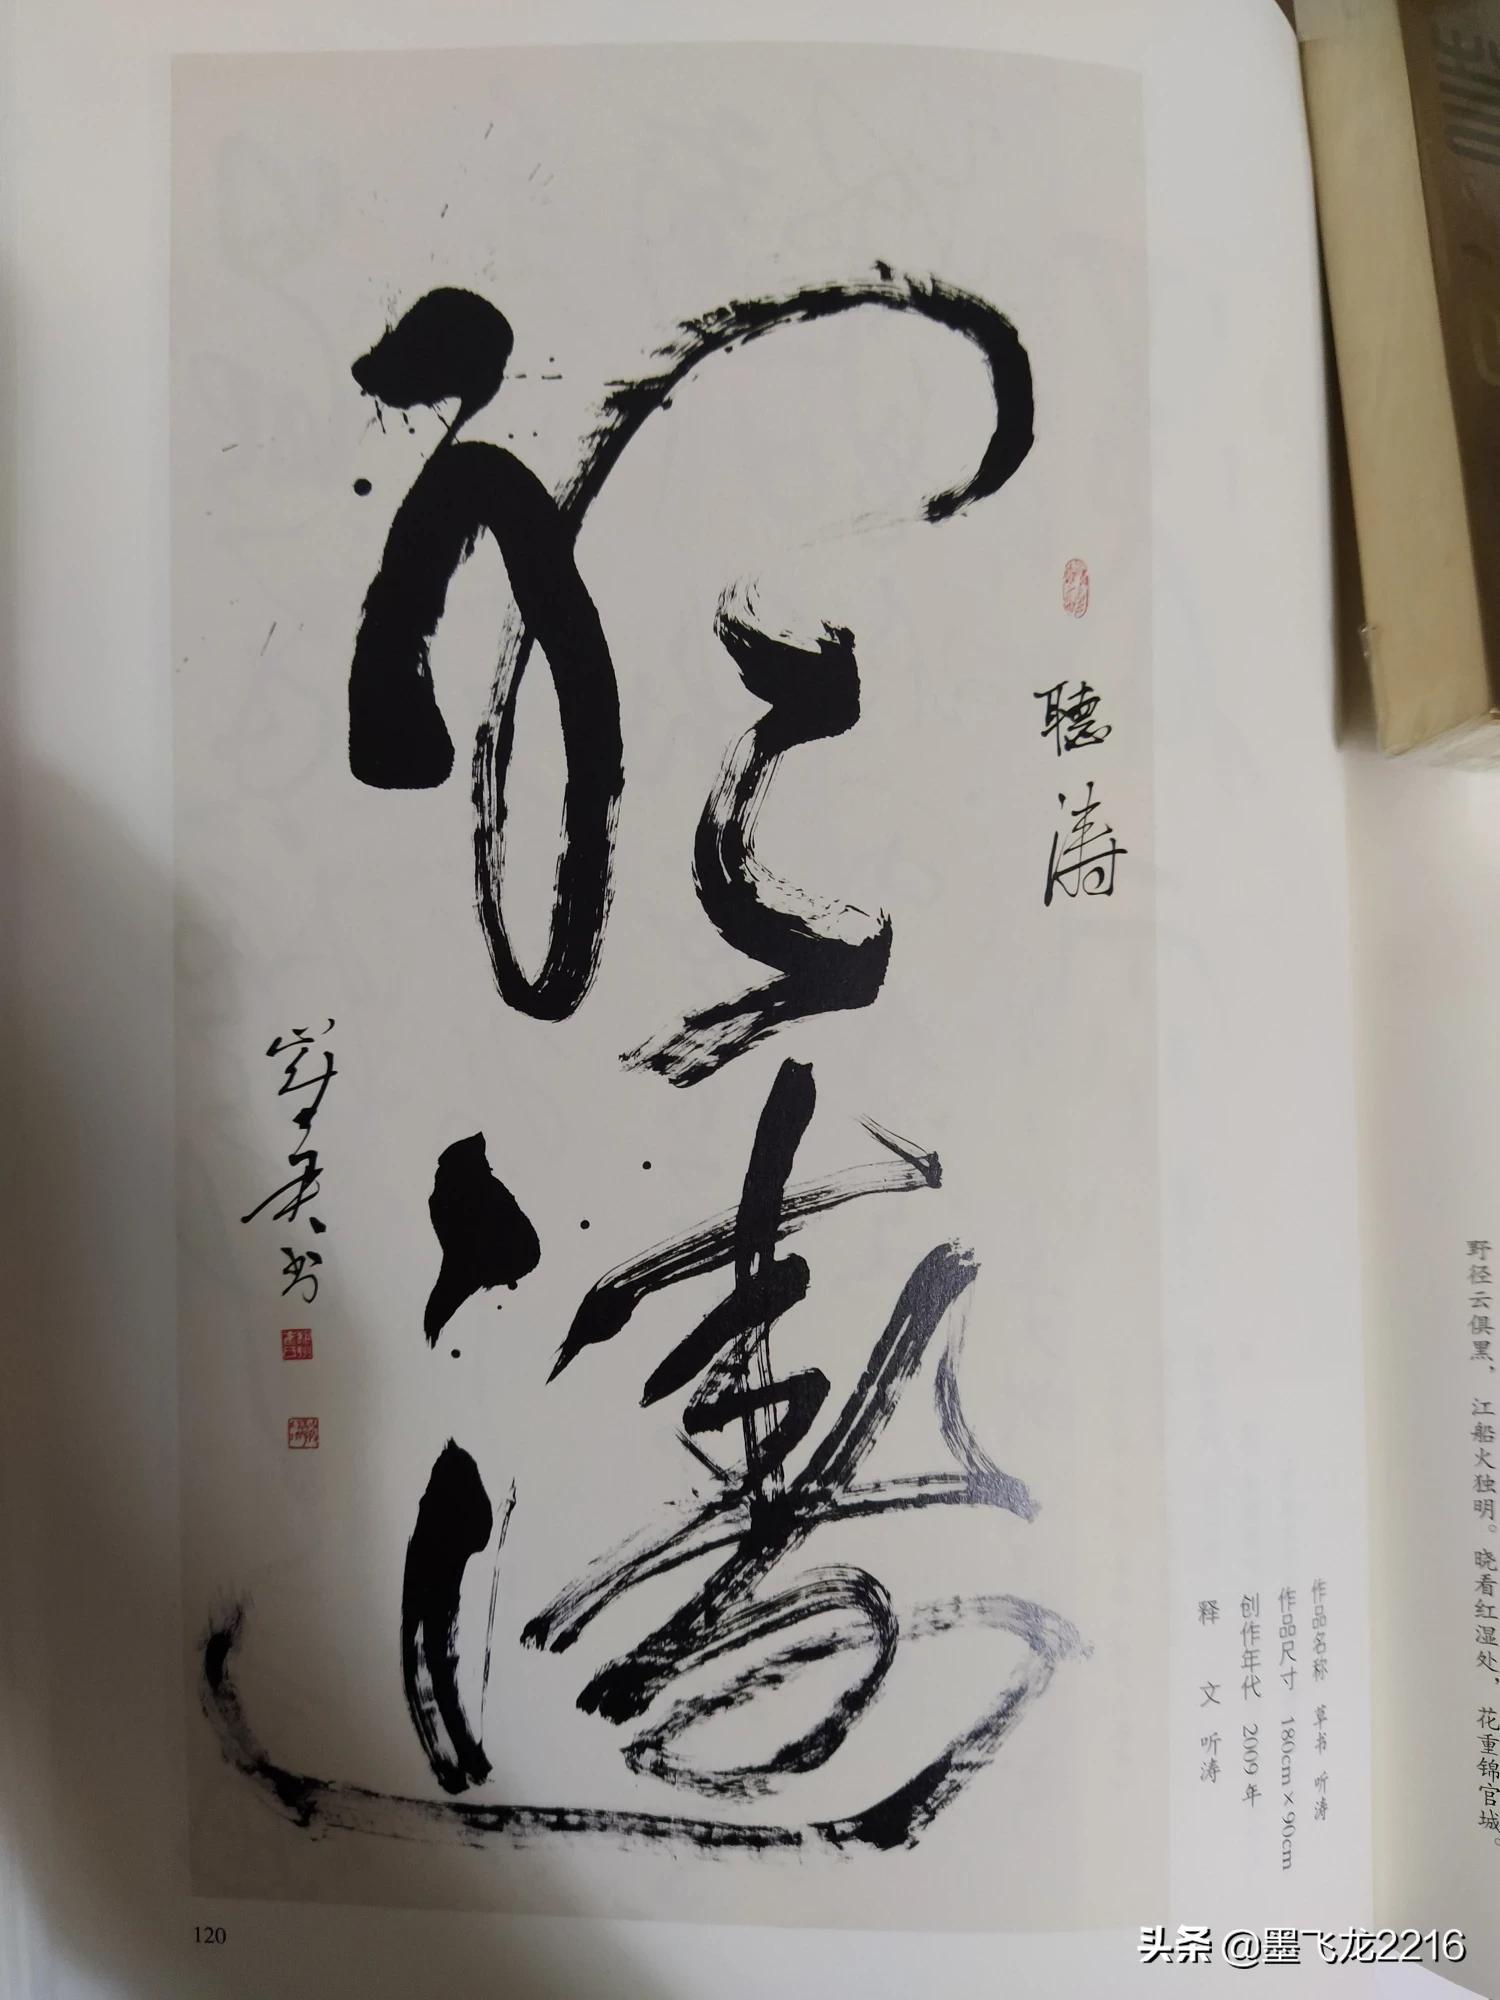 聽濤
聽濤
书
作品名称 草书 听涛
作品尺寸 180cm×90cm
创作年代 2009年
释文 听涛
野径云俱黑，江船火独明。晓看红湿处，花重锦官城。
120
头条 @墨飞龙2216